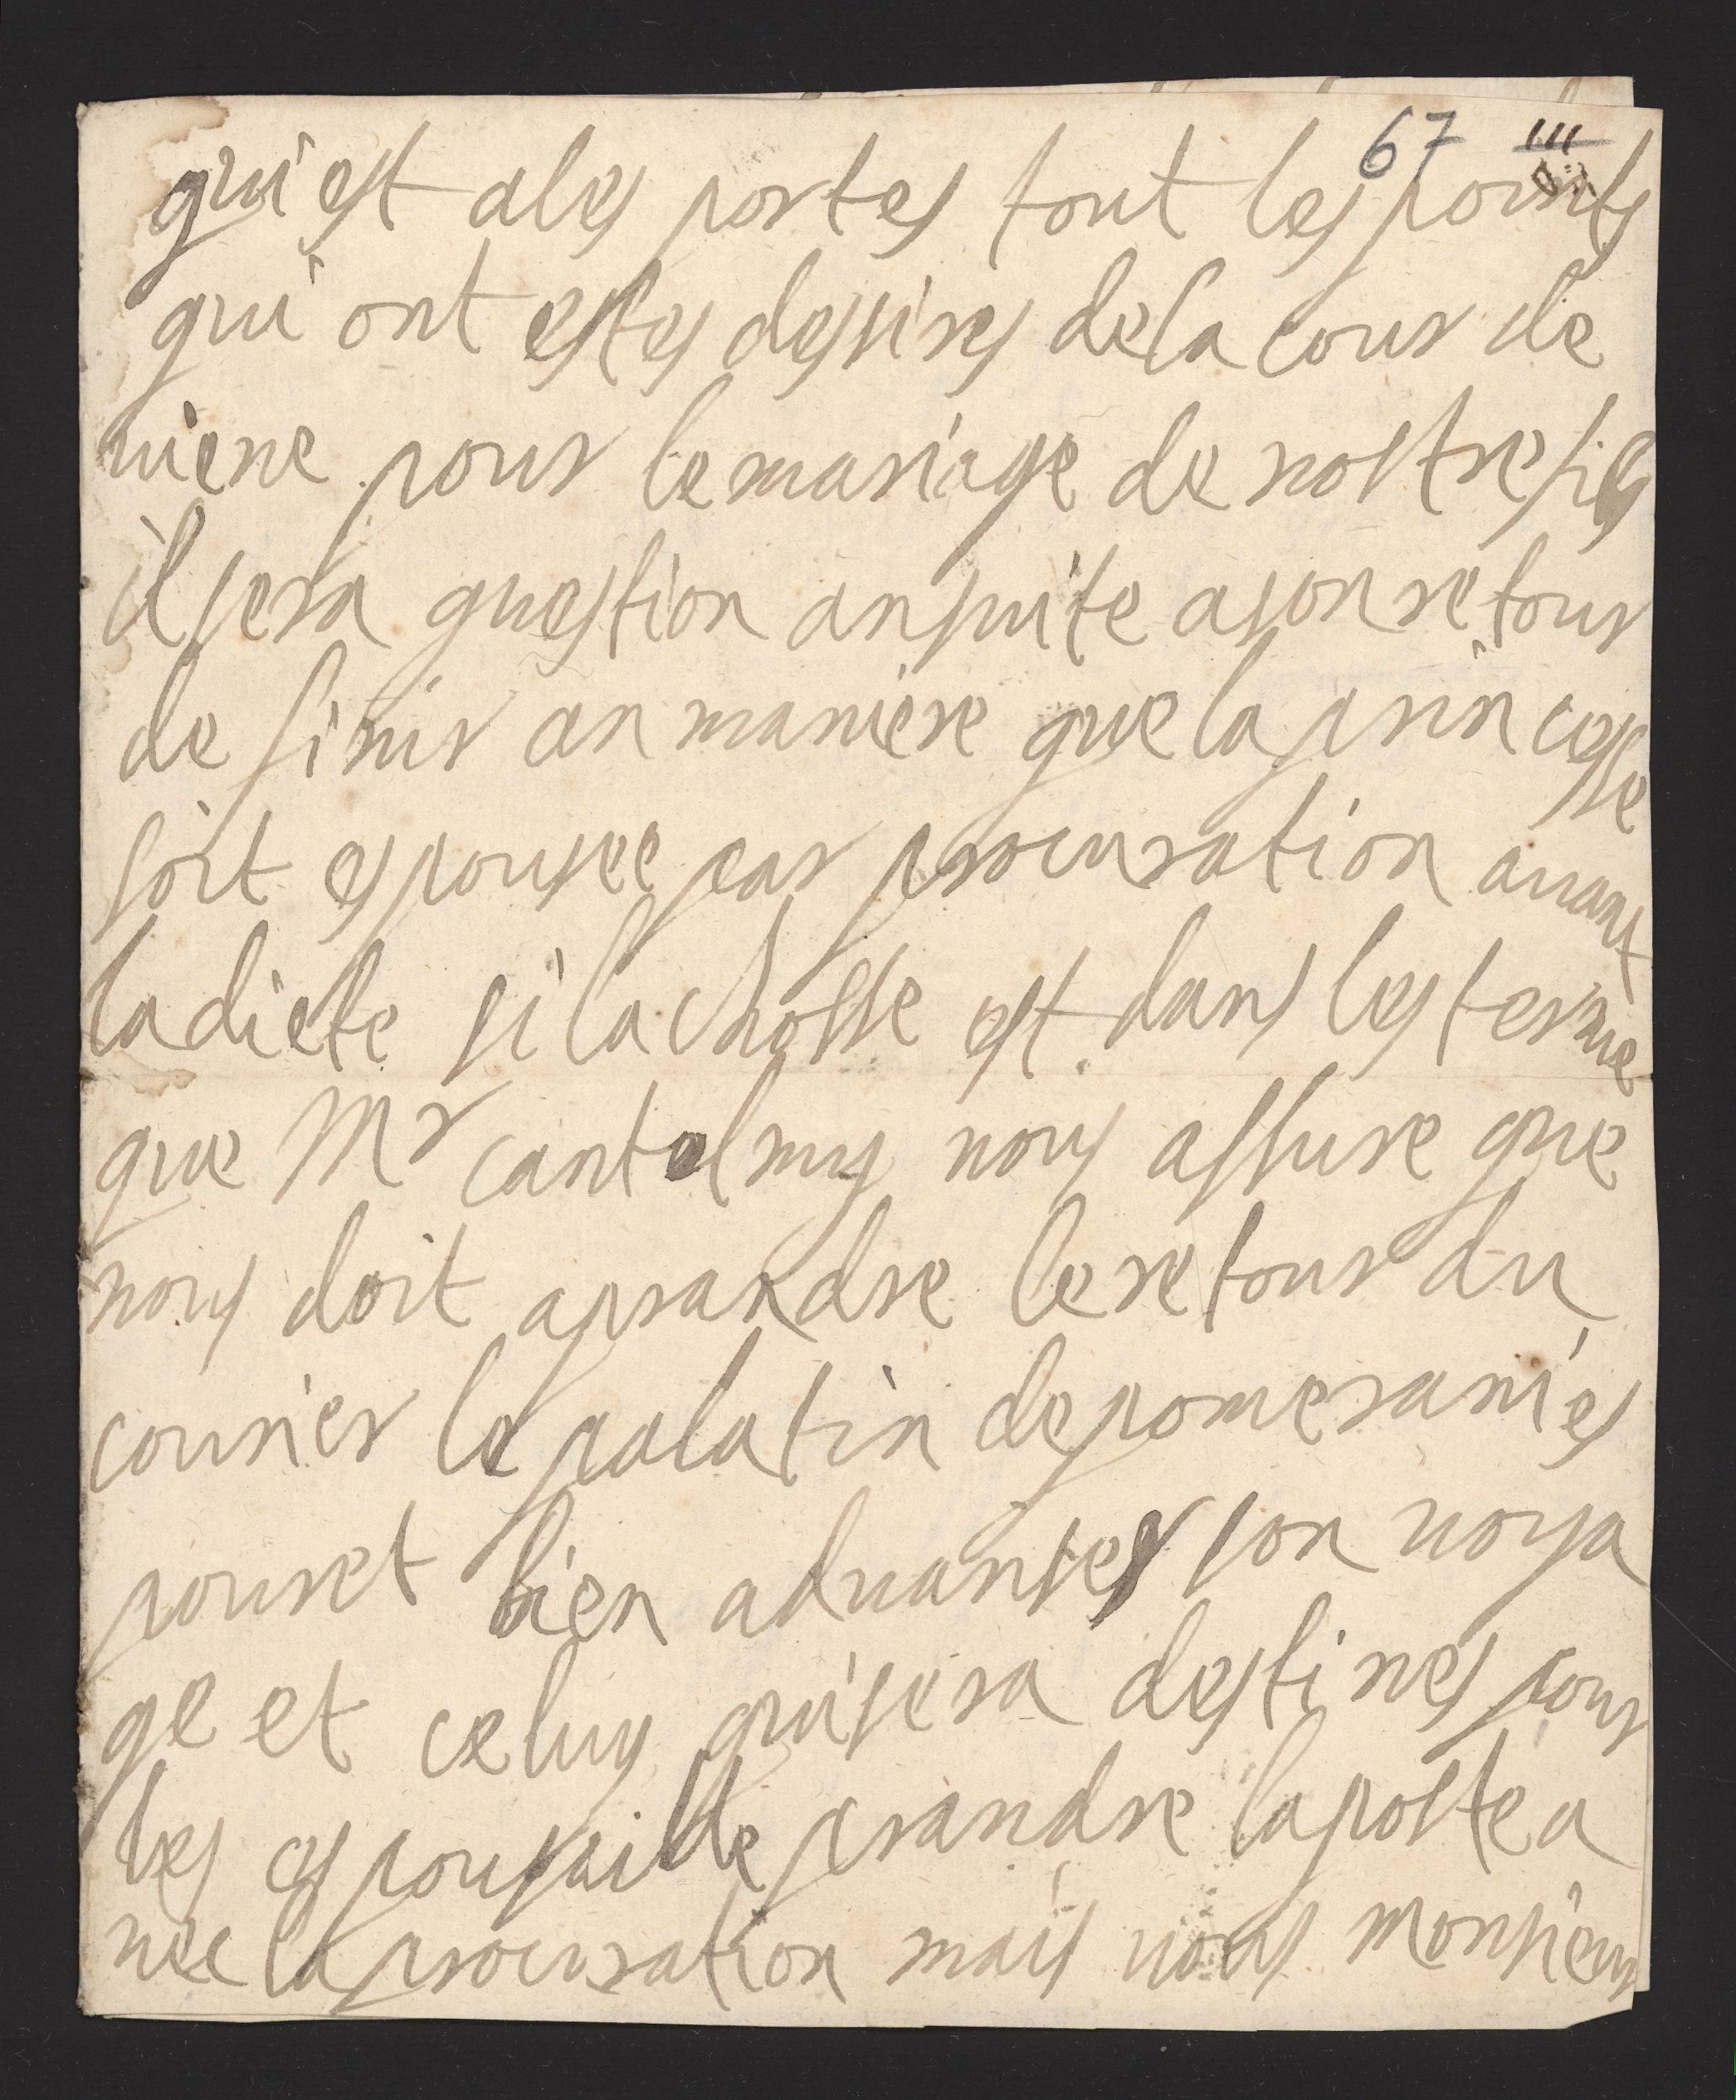 67 III
qui est ales portes tout les points
qui ont estes dessires de la cour de
viene pour le mariage de nostre fils
il sera question ansuite a son retour
de finir an maniere que la prin cesse
soit espousee par procuration avant
la diete si la chosse est dans les terme
que Mr cantelmy nous assure que
nous doit aprandre le retour du
courier le palatin de pomeranies
pouret bien advanser son voya
ge et celuy qui sera destines pour
les espousaille prandre la poste a
vec la procuration mais vous monsieur